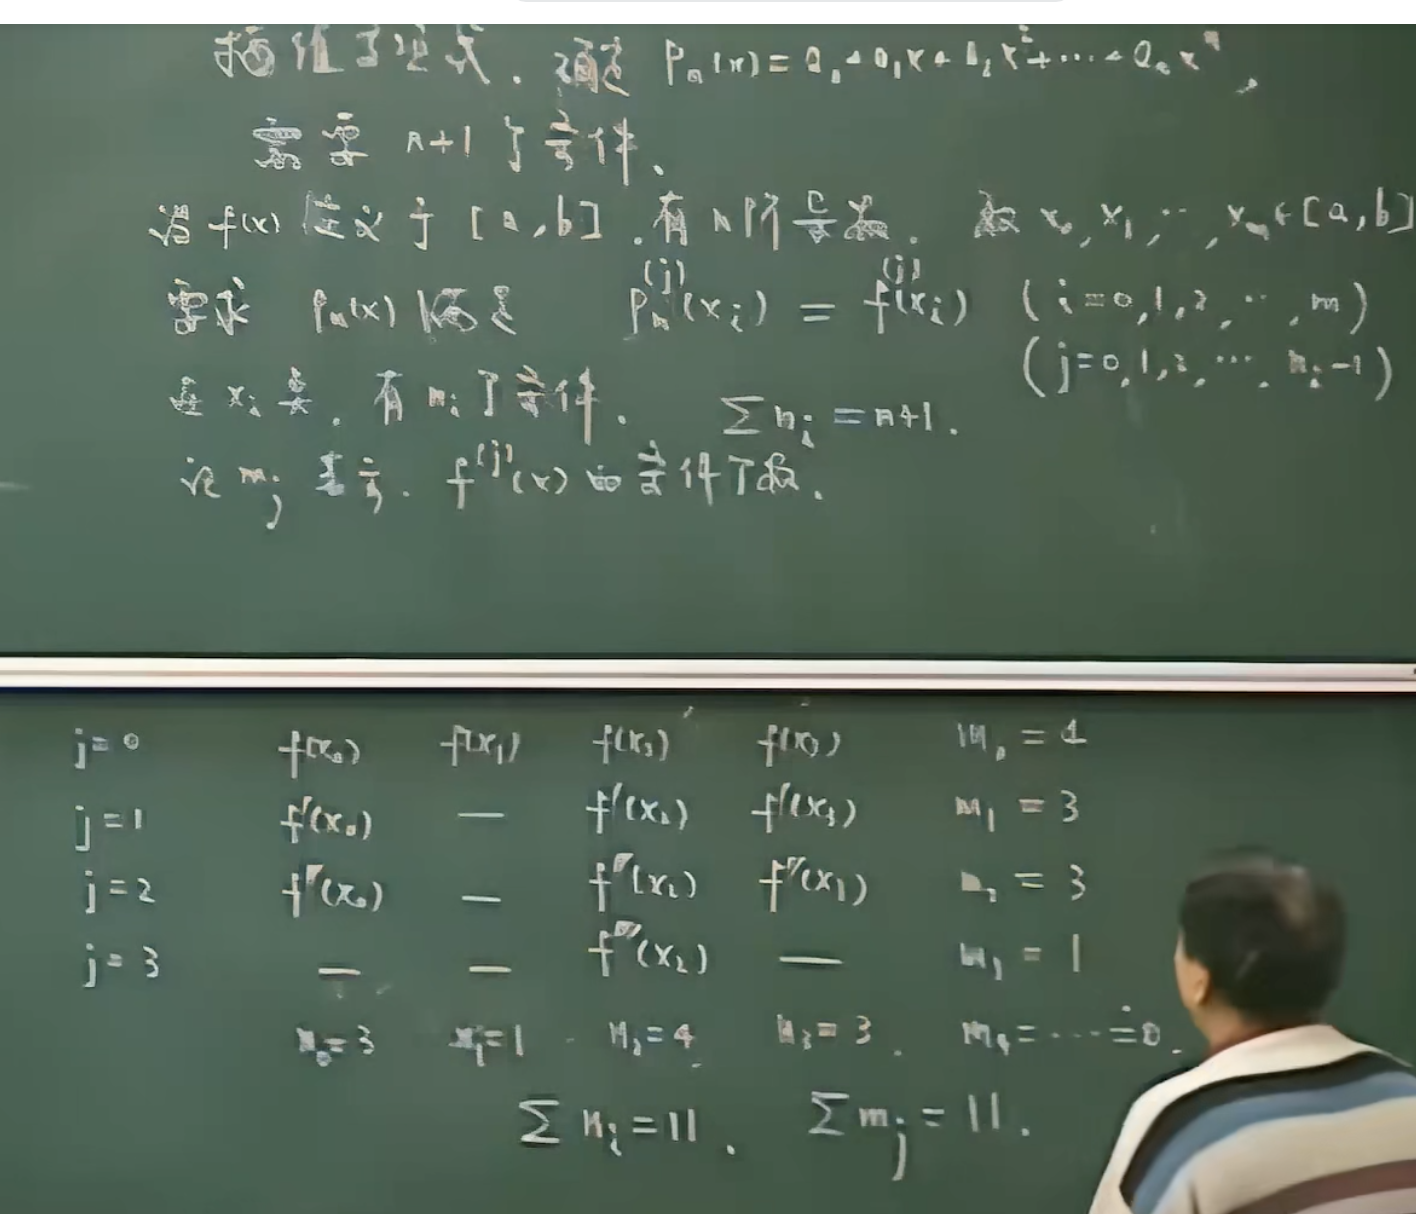 插值多项式. 确定 Pₙ(x) = a₀ + a₁x + a₂x² + ⋯ + aₙxⁿ,
需要 n+1 个条件.
设 f(x) 定义于 [a,b]. 有 n 阶导数. 取 x₀, x₁, ⋯, xₘ ∈ [a,b]
要求 Pₙ(x) 满足 Pₙ⁽ʲ⁾(xᵢ) = f⁽ʲ⁾(xᵢ) (i=0,1,2,⋯,m)
(j=0,1,2,⋯,nᵢ-1)
在 xᵢ 处. 有 nᵢ 个条件. Σnᵢ = n+1.
记 mⱼ 表示. f⁽ʲ⁾(x) 的条件个数.
j=0 f(x₀) f(x₁) f(x₂) f(x₃) m₀ = 4
j=1 f'(x₀) — f'(x₂) f'(x₃) m₁ = 3
j=2 f''(x₀) — f''(x₂) f''(x₃) m₂ = 3
j=3 — — f'''(x₂) — m₃ = 1
n₀=3 n₁=1 n₂=4 n₃=3. m₄=⋯=0.
Σnᵢ=11. Σmⱼ=11.